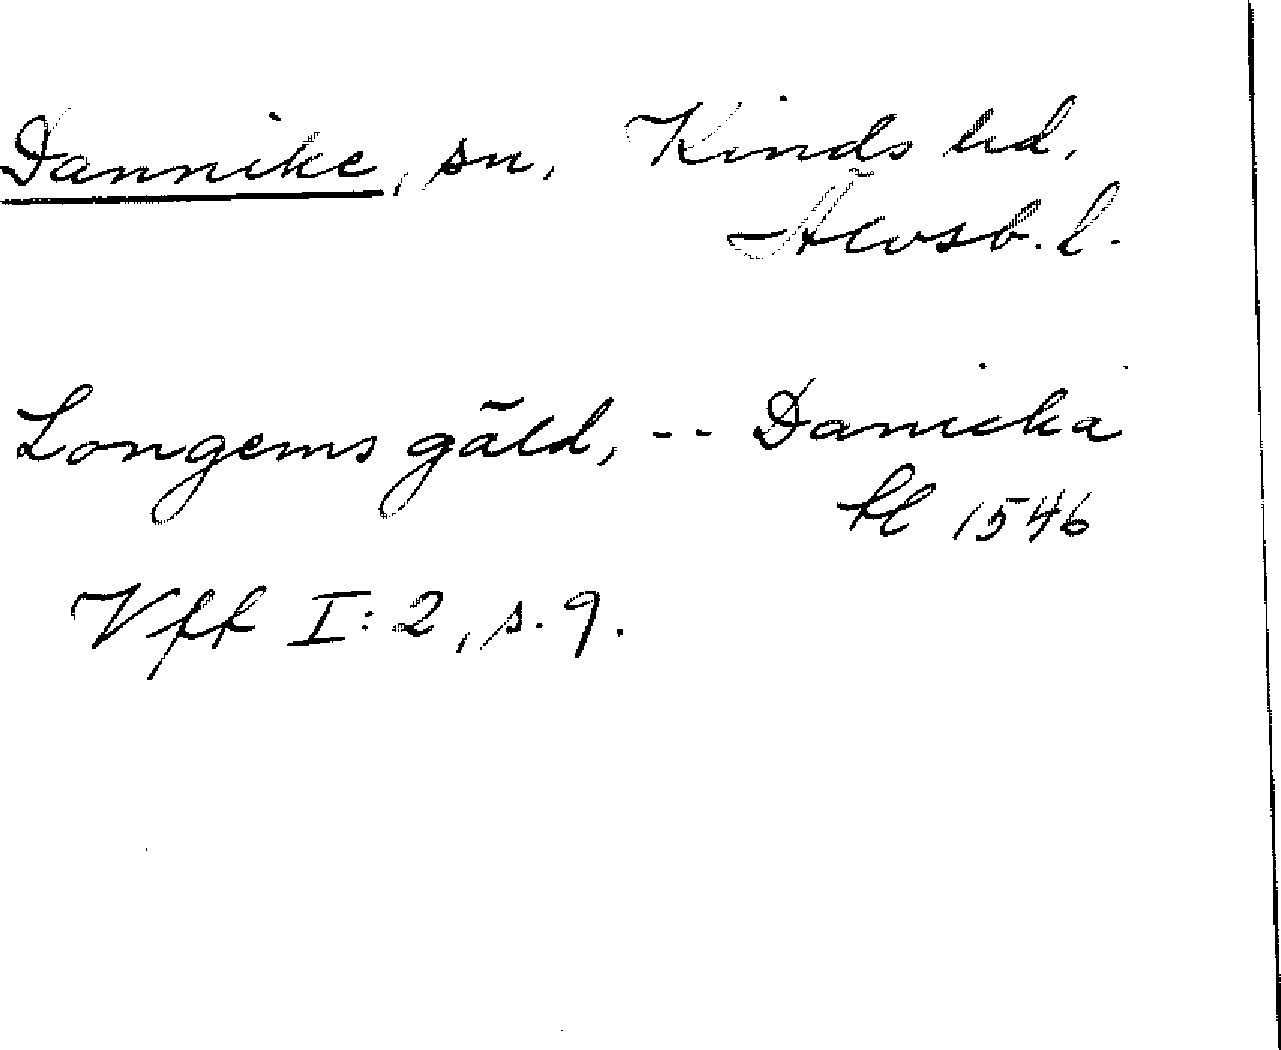 Dannike, sn, Kinds hd.
Älvsb. l.
Longems gäld, -- Danicka
hl 1546
Vff I: 2, s. 9.